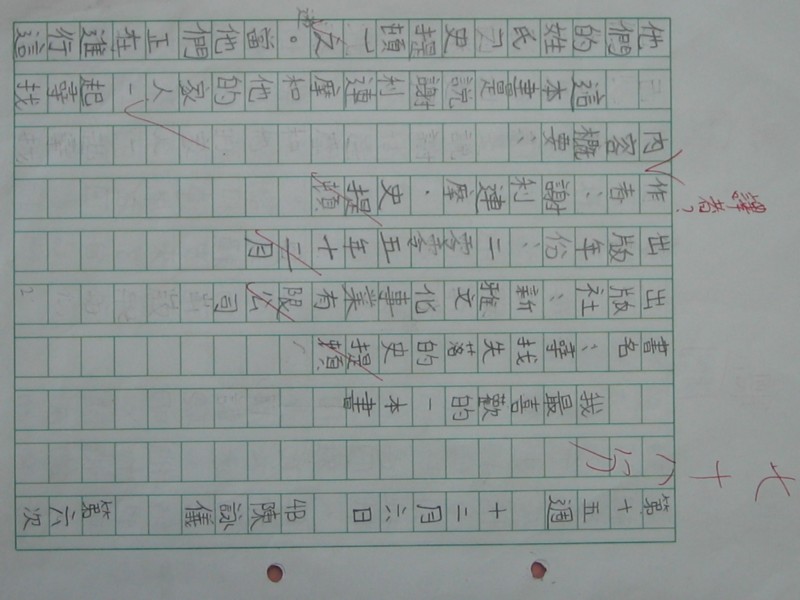 第十五週 十二月六日 陳詠儀 第六次
七十八分
我最喜歡的一本書
書名：尋找失落的史提頓
出版社：新雅文化事業有限公司
出版年份：二零零五年十二月
作者：謝利連摩．史提頓
譯者？
內容概要：
這本書是說謝利連摩和他的家人一起尋找
他們的姓氏「史提頓」之謎。當他們正在進行這